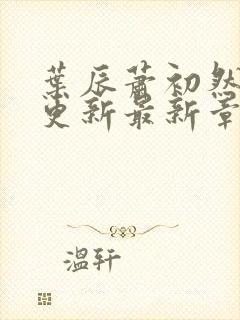 葉辰蕭初然
更新最新章
溫軒